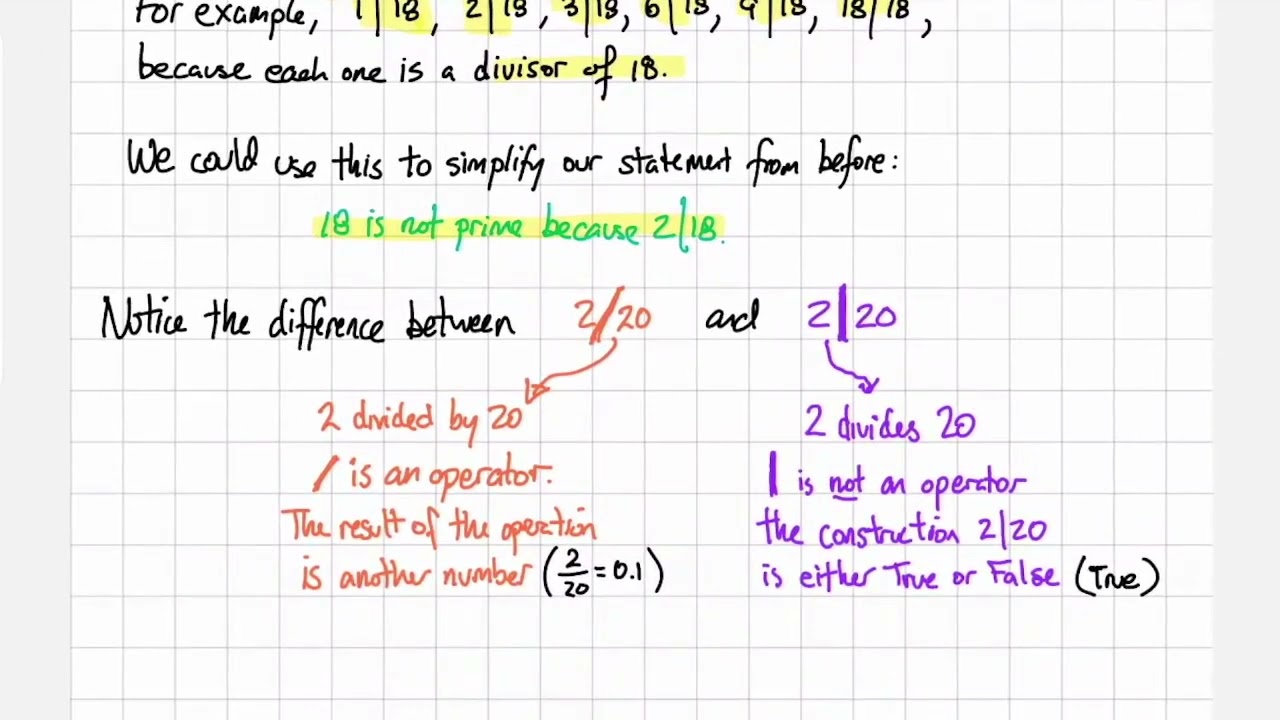 For example, 1|18, 2|18, 3|18, 6|18, 9|18, 18|18,
because each one is a divisor of 18.
We could use this to simplify our statement from before:
18 is not prime because 2|18.
Notice the difference between 2/20 and 2|20
2 divided by 20
/ is an operator.
The result of the operation
is another number (2/20 = 0.1)
2 divides 20
| is not an operator
the construction 2|20
is either True or False (True)